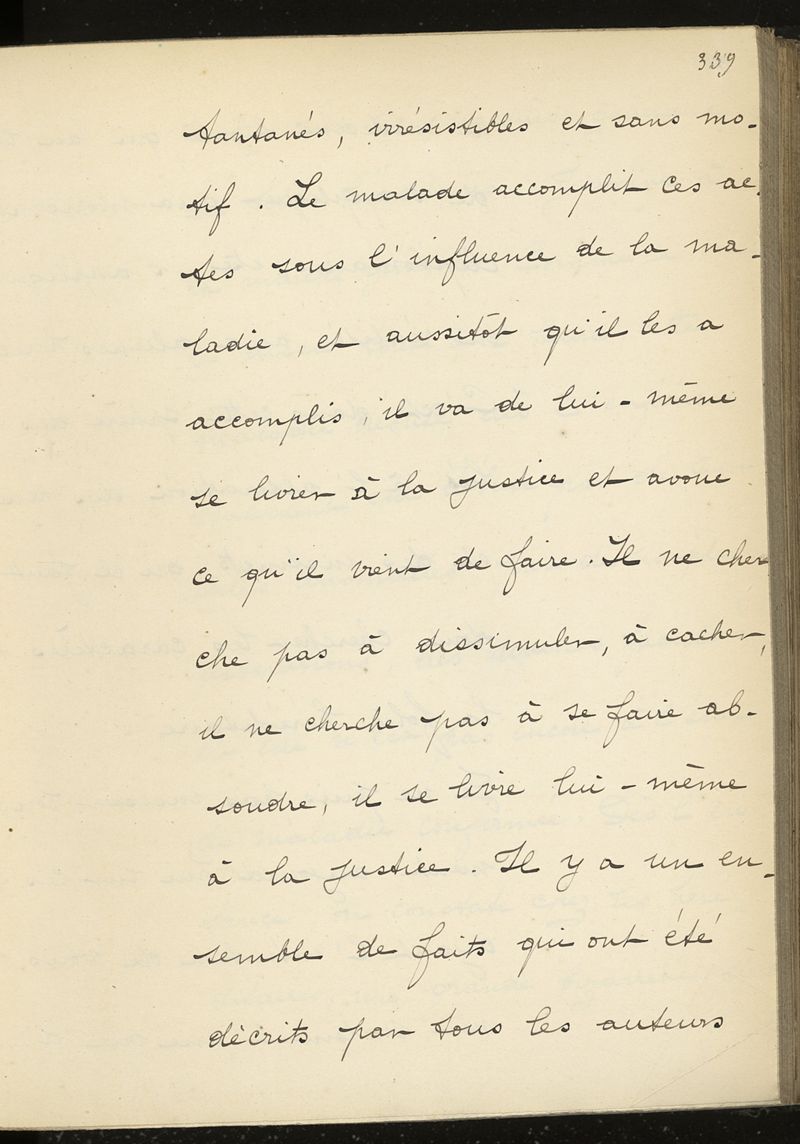 339
tantanés, irrésistibles et sans mo-
tif. Le malade accomplit ces ac-
tes sous l'influence de la ma-
ladie, et aussitôt qu'il les a
accomplis, il va de lui-même
se livrer à la justice et avoue
ce qu'il vient de faire. Il ne cher
che pas à dissimuler, à cacher,
il ne cherche pas à se faire ab-
soudre, il se livre lui-même
à la justice. Il y a un en-
semble de faits qui ont été
décrits par tous les auteurs